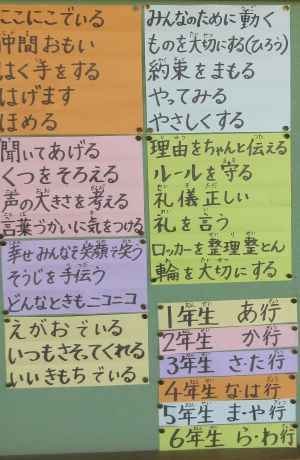 にこにこでいる
仲間おもい
はく手をする
はげます
ほめる
聞いてあげる
くつをそろえる
声の大きさを考える
言葉づかいに気をつける
幸せみんなで笑顔で笑う
そうじを手伝う
どんなときもニコニコ
えがおでいる
いつもさそってくれる
いいきもちでいる
みんなのために動く
ものを大切にする(ひろう)
約束をまもる
やってみる
やさしくする
理由をちゃんと伝える
ルールを守る
礼儀正しい
礼を言う
ロッカーを整理整とん
輪を大切にする
1年生 あ行
2年生 か行
3年生 さ・た行
4年生 な・は行
5年生 ま・や行
6年生 ら・わ行